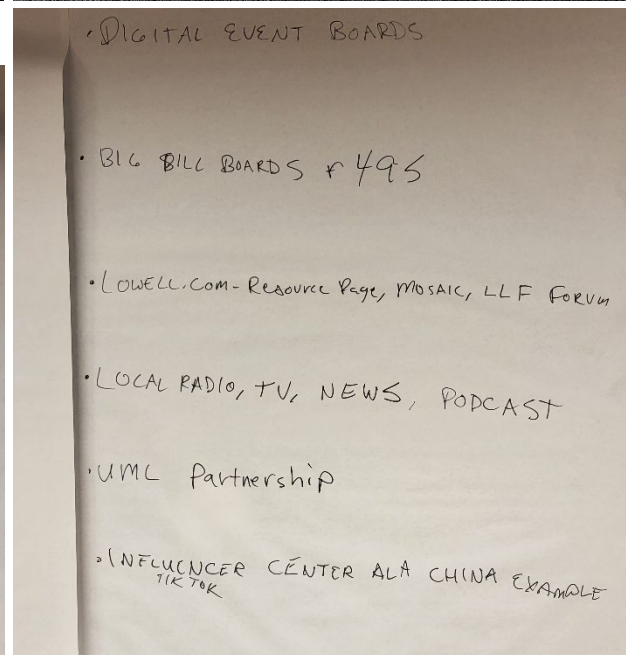 • DIGITAL EVENT BOARDS
• BIG BILL BOARDS r 495
• LOWELL.COM - Resource Page, MOSAIC, LLF FORUM
• LOCAL RADIO, TV, NEWS, PODCAST
• UML Partnership
• INFLUENCER CENTER ALA CHINA EXAMPLE
TIK TOK